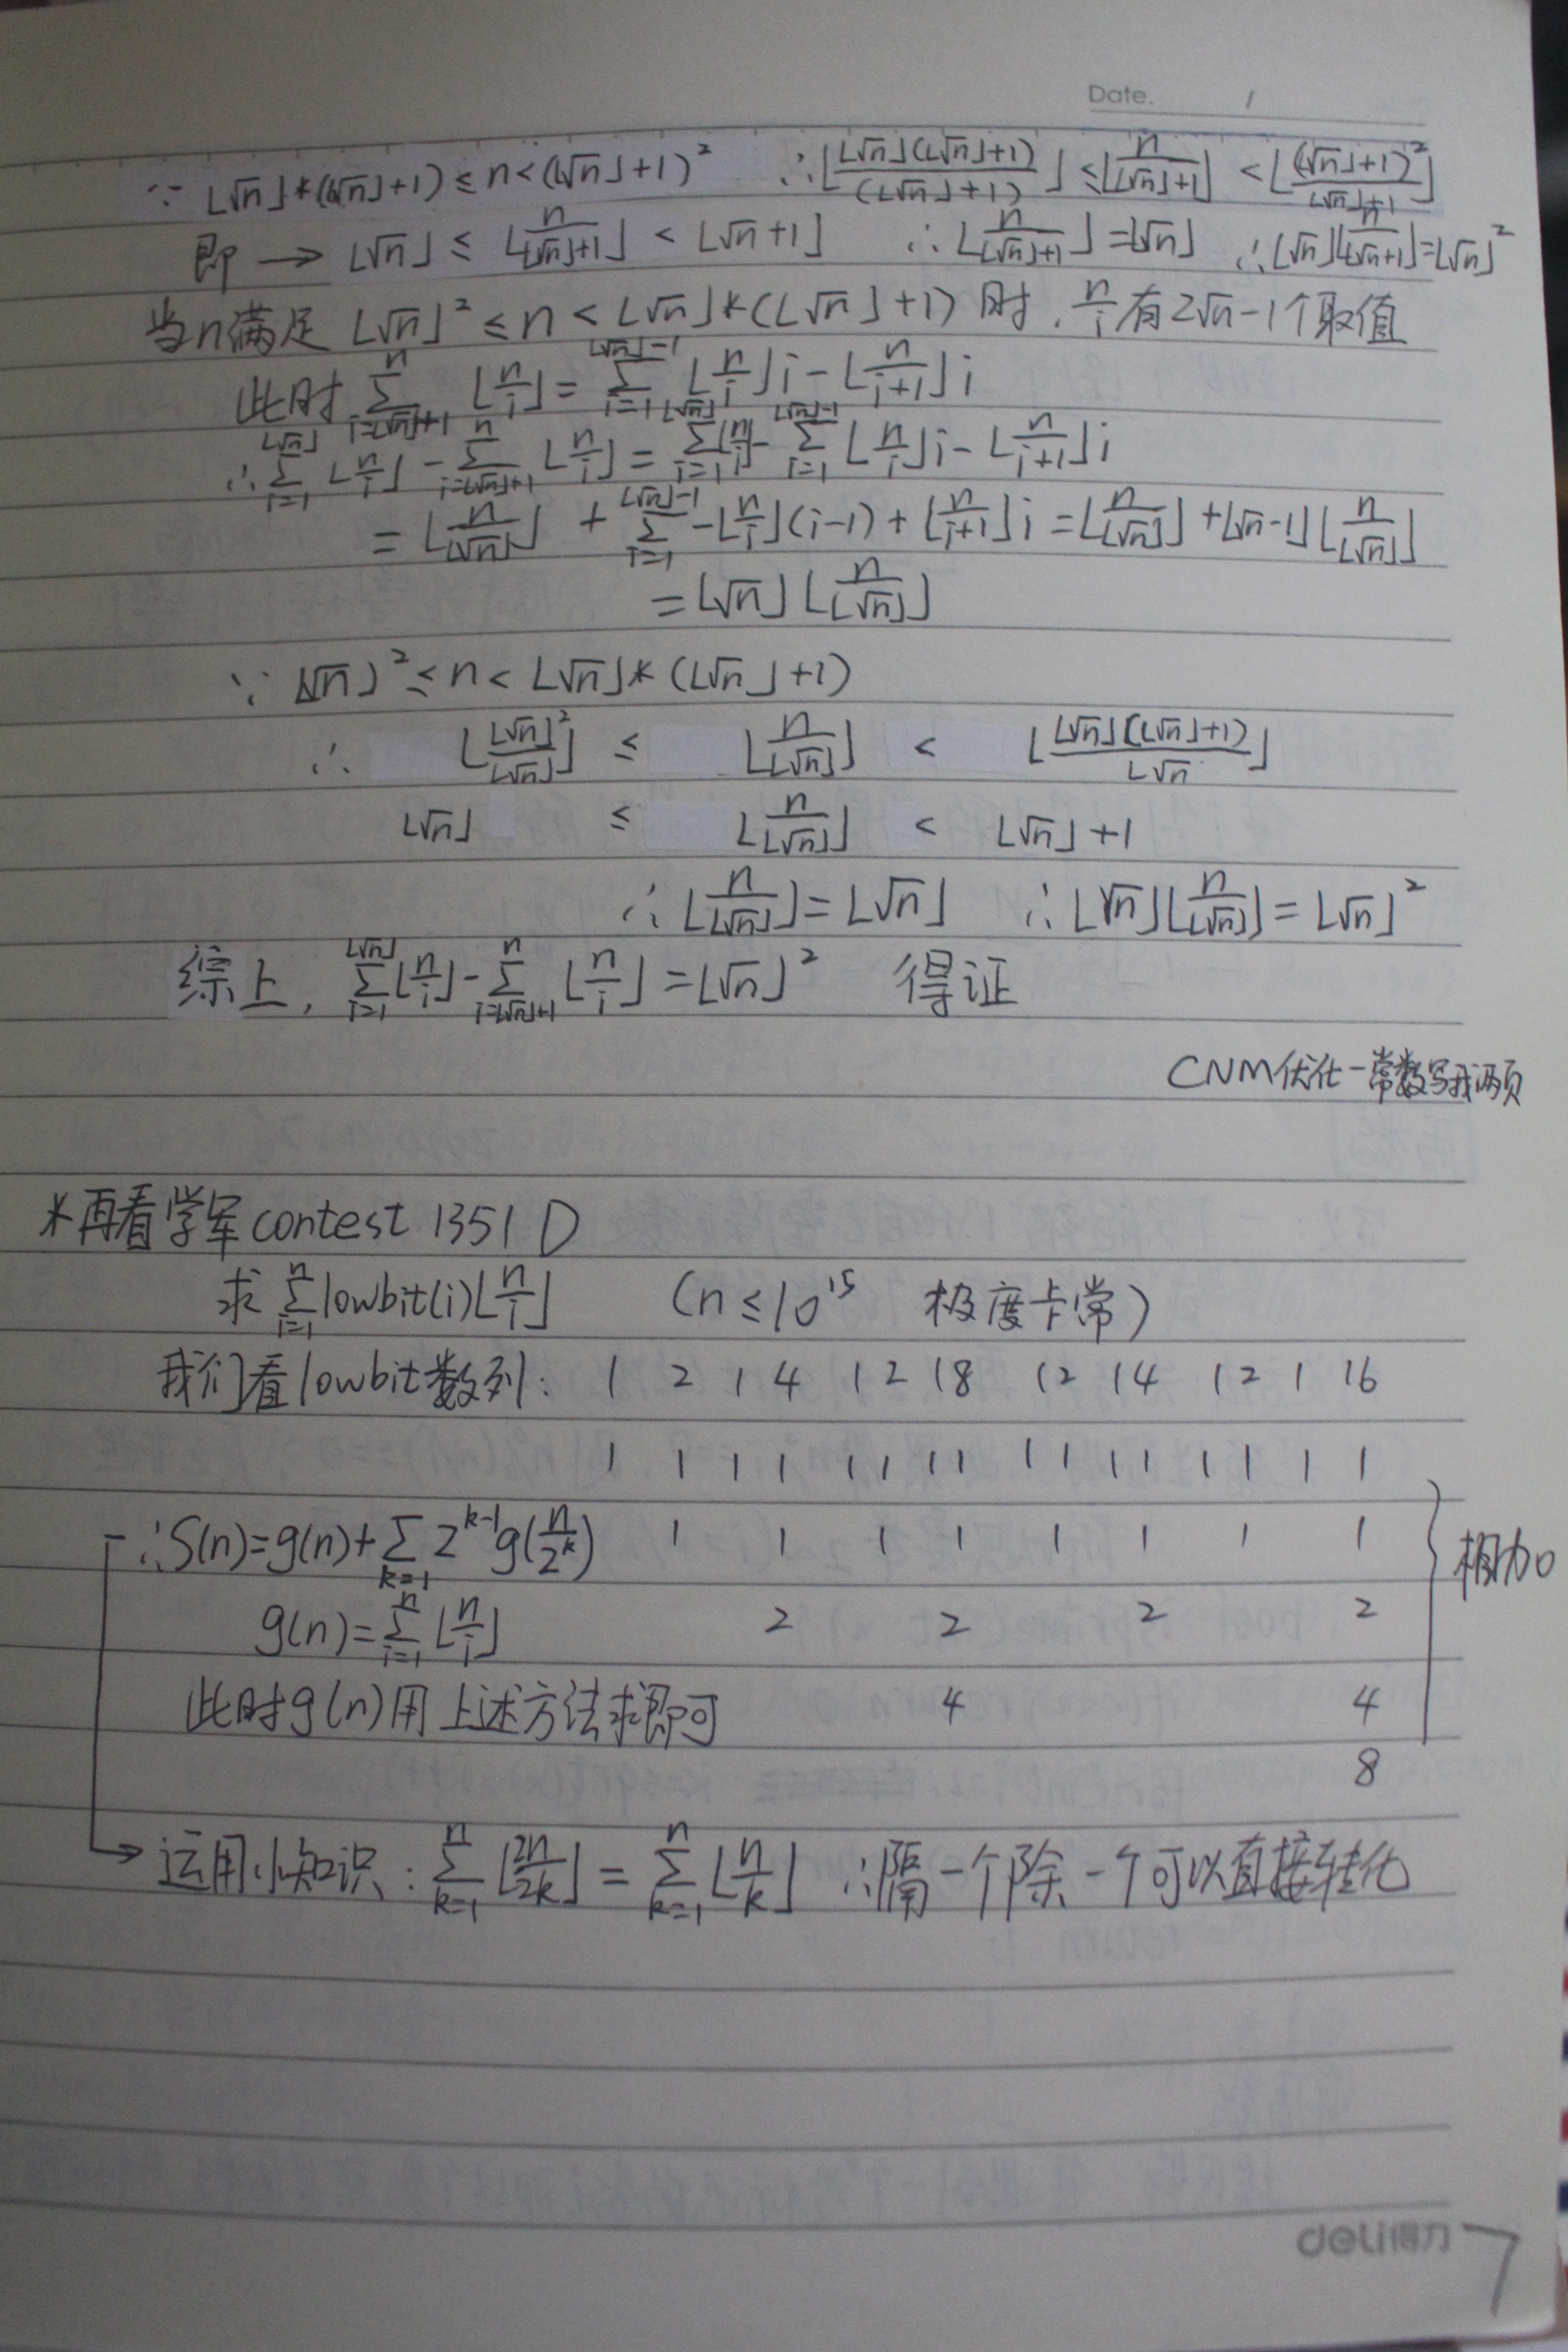 Date. /
∵ ⌊√n⌋*(⌊√n⌋+1) ≤ n < (⌊√n⌋+1)² ∴ ⌊⌊√n⌋(⌊√n⌋+1)/(⌊√n⌋+1)⌋ ≤ ⌊n/(⌊√n⌋+1)⌋ < ⌊(⌊√n⌋+1)²/(⌊√n⌋+1)⌋
即 → ⌊√n⌋ ≤ ⌊n/(⌊√n⌋+1)⌋ < ⌊√n+1⌋ ∴ ⌊n/(⌊√n⌋+1)⌋ = ⌊√n⌋ ∴ ⌊√n⌋⌊n/(⌊√n+1⌋)⌋ = ⌊√n⌋²
当n满足 ⌊√n⌋² ≤ n < ⌊√n⌋*(⌊√n⌋+1) 时, n/i 有2√n-1个取值
此时 ∑_{i=⌊√n⌋+1}^{n} ⌊n/i⌋ = ∑_{i=1}^{⌊√n⌋-1} ⌊n/i⌋i - ⌊n/(i+1)⌋i
∴ ∑_{i=1}^{⌊√n⌋} ⌊n/i⌋ - ∑_{i=⌊√n⌋+1}^{n} ⌊n/i⌋ = ∑_{i=1}^{⌊√n⌋} ⌊n/i⌋ - ∑_{i=1}^{⌊√n⌋-1} ⌊n/i⌋i - ⌊n/(i+1)⌋i
= ⌊n/⌊√n⌋⌋ + ∑_{i=1}^{⌊√n⌋-1} -⌊n/i⌋(i-1) + ⌊n/(i+1)⌋i = ⌊n/⌊√n⌋⌋ + ⌊√n-1⌋⌊n/⌊√n⌋⌋
= ⌊√n⌋⌊n/⌊√n⌋⌋
∵ ⌊√n⌋² ≤ n < ⌊√n⌋*(⌊√n⌋+1)
∴ ⌊⌊√n⌋²/⌊√n⌋⌋ ≤ ⌊n/⌊√n⌋⌋ < ⌊⌊√n⌋(⌊√n⌋+1)/⌊√n⌋
⌊√n⌋ ≤ ⌊n/⌊√n⌋⌋ < ⌊√n⌋+1
∴ ⌊n/⌊√n⌋⌋ = ⌊√n⌋ ∴ ⌊√n⌋⌊n/⌊√n⌋⌋ = ⌊√n⌋²
综上, ∑_{i=1}^{⌊√n⌋} ⌊n/i⌋ - ∑_{i=⌊√n⌋+1}^{n} ⌊n/i⌋ = ⌊√n⌋² 得证
CNM优化一常数写我两页
*再看学军contest 1351 D
求 ∑_{i=1}^{n} lowbit(i)⌊n/i⌋ (n≤10^15 极度卡常)
我们看lowbit数列: 1 2 1 4 1 2 1 8 1 2 1 4 1 2 1 16
1 1 1 1 1 1 1 1 1 1 1 1 1 1 1 1
∴S(n)=g(n)+∑_{k=1} 2^{k-1}g(n/2^k) 1 1 1 1 1 1 1 1 相加
g(n)=∑_{i=1}^{n} ⌊n/i⌋ 2 2 2 2
此时g(n)用上述方法求即可 4 4
8
运用小知识: ∑_{k=1}^{n} ⌊2n/2k⌋ = ∑_{k=1}^{n} ⌊n/k⌋ ∴隔一个除一个可以直接转化
deli得力 7